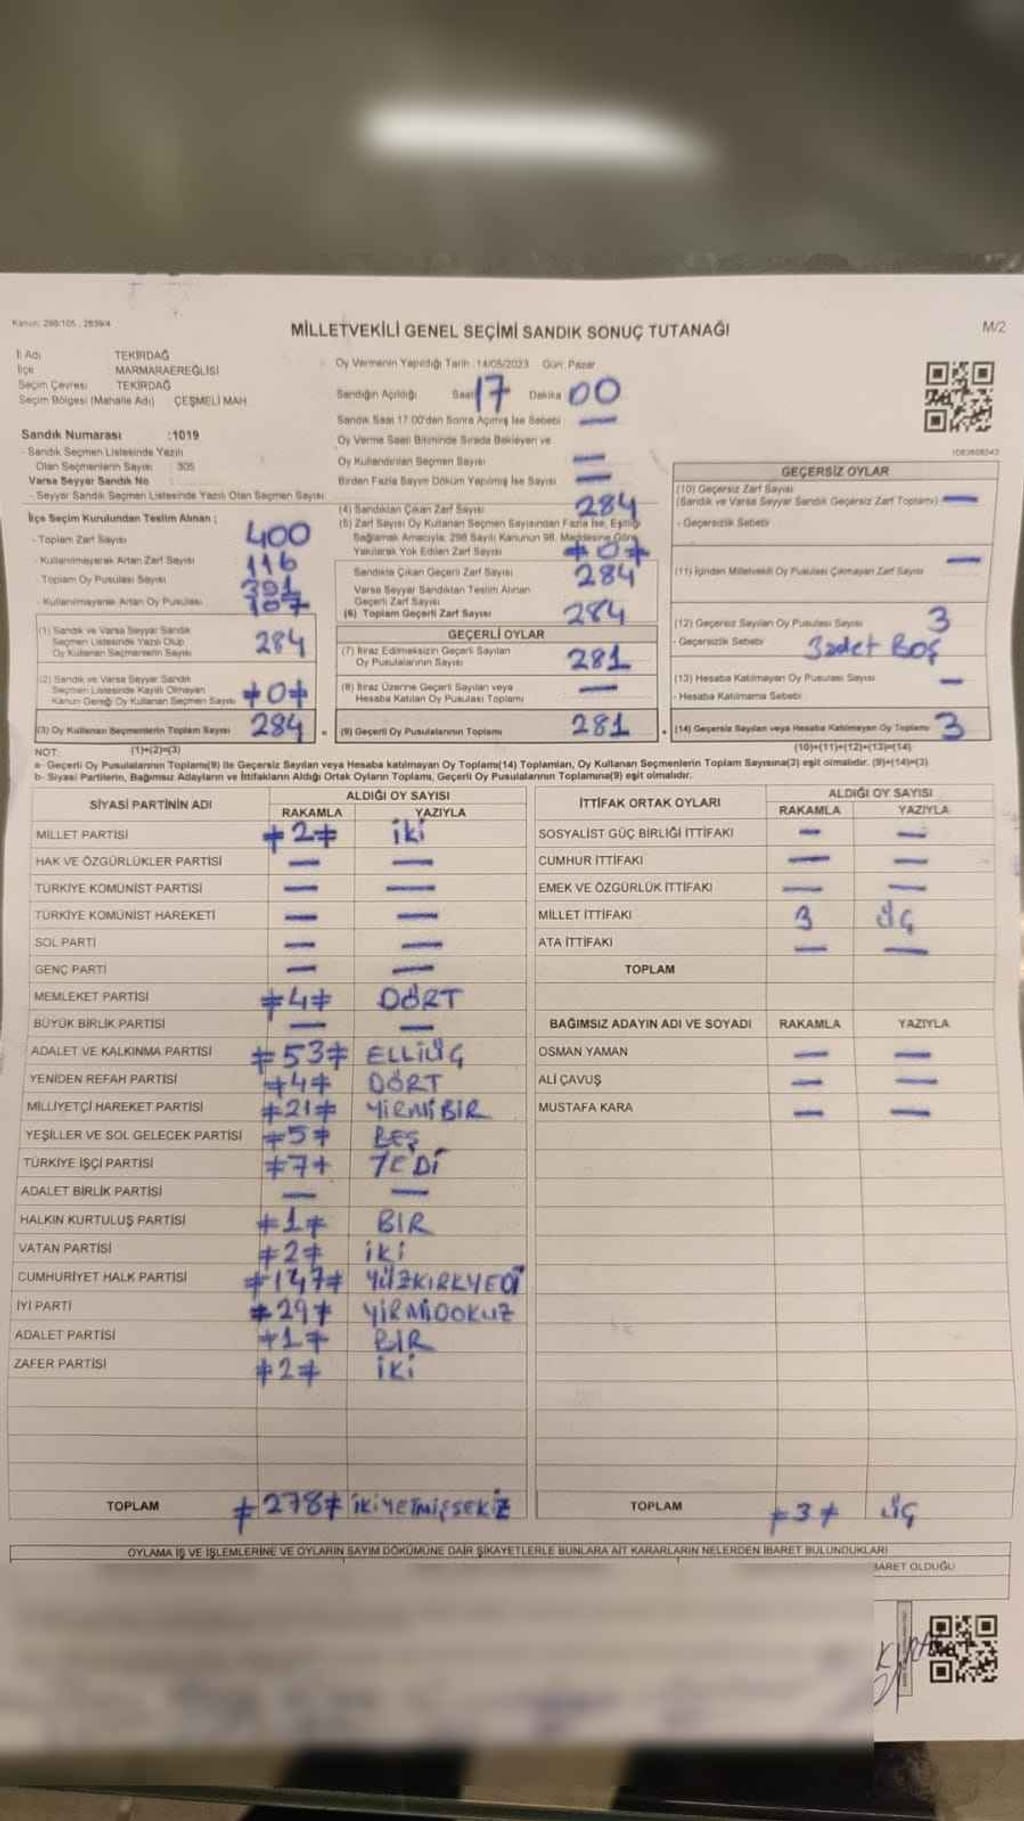 Kanun: 298/105, 2839/4
MİLLETVEKİLİ GENEL SEÇİMİ SANDIK SONUÇ TUTANAĞI
M/2
İl Adı TEKİRDAĞ
İlçe MARMARAEREĞLİSİ
Seçim Çevresi TEKİRDAĞ
Seçim Bölgesi (Mahalle Adı) ÇEŞMELİ MAH
Sandık Numarası :1019
- Sandık Seçmen Listesinde Yazılı
Olan Seçmenlerin Sayısı : 305
Varsa Seyyar Sandık No :
- Seyyar Sandık Seçmen Listesinde Yazılı Olan Seçmen Sayısı :
İlçe Seçim Kurulundan Teslim Alınan ;
- Toplam Zarf Sayısı 400
- Kullanılmayarak Artan Zarf Sayısı 116
- Toplam Oy Pusulası Sayısı 391
- Kullanılmayarak Artan Oy Pusulası 107
(1) Sandık ve Varsa Seyyar Sandık
Seçmen Listesinde Yazılı Olup
Oy Kullanan Seçmenlerin Sayısı 284
(2) Sandık ve Varsa Seyyar Sandık
Seçmen Listesinde Kayıtlı Olmayan
Kanun Gereği Oy Kullanan Seçmen Sayısı ≠0≠
(3) Oy Kullanan Seçmenlerin Toplam Sayısı 284 =
(1)+(2)=(3)
Oy Vermenin Yapıldığı Tarih :14/05/2023 Gün: Pazar
Sandığın Açıldığı Saat 17 Dakika 00
Sandık Saat 17.00'den Sonra Açılmış İse Sebebi —
Oy Verme Saati Bitiminde Sırada Bekleyen ve
Oy Kullandırılan Seçmen Sayısı —
Birden Fazla Sayım Döküm Yapılmış İse Sayısı —
(4) Sandıktan Çıkan Zarf Sayısı 284
(5) Zarf Sayısı Oy Kullanan Seçmen Sayısından Fazla İse, Eşitliği
Sağlamak Amacıyla, 298 Sayılı Kanunun 98. Maddesine Göre
Yakılarak Yok Edilen Zarf Sayısı ≠0≠
Sandıkta Çıkan Geçerli Zarf Sayısı 284
Varsa Seyyar Sandıktan Teslim Alınan
Geçerli Zarf Sayısı
(6) Toplam Geçerli Zarf Sayısı 284
GEÇERLİ OYLAR
(7) İtiraz Edilmeksizin Geçerli Sayılan
Oy Pusulalarının Sayısı 281
(8) İtiraz Üzerine Geçerli Sayılan veya
Hesaba Katılan Oy Pusulası Toplamı —
(9) Geçerli Oy Pusulalarının Toplamı 281 +
GEÇERSİZ OYLAR
(10) Geçersiz Zarf Sayısı
(Sandık ve Varsa Seyyar Sandık Geçersiz Zarf Toplamı) —
- Geçersizlik Sebebi
(11) İçinden Milletvekili Oy Pusulası Çıkmayan Zarf Sayısı —
(12) Geçersiz Sayılan Oy Pusulası Sayısı 3
- Geçersizlik Sebebi 3 adet BOŞ
(13) Hesaba Katılmayan Oy Pusulası Sayısı —
- Hesaba Katılmama Sebebi
(14) Geçersiz Sayılan veya Hesaba Katılmayan Oy Toplamı 3
(10)+(11)+(12)+(13)=(14)
NOT:
a- Geçerli Oy Pusulalarının Toplamı(9) İle Geçersiz Sayılan veya Hesaba katılmayan Oy Toplamı(14) Toplamları, Oy Kullanan Seçmenlerin Toplam Sayısına(3) eşit olmalıdır. (9)+(14)=(3)
b- Siyasi Partilerin, Bağımsız Adayların ve İttifakların Aldığı Ortak Oyların Toplamı, Geçerli Oy Pusulalarının Toplamına(9) eşit olmalıdır.
SİYASİ PARTİNİN ADI ALDIĞI OY SAYISI
RAKAMLA YAZIYLA
MİLLET PARTİSİ ≠2≠ iki
HAK VE ÖZGÜRLÜKLER PARTİSİ — —
TÜRKİYE KOMÜNİST PARTİSİ — —
TÜRKİYE KOMÜNİST HAREKETİ — —
SOL PARTİ — —
GENÇ PARTİ — —
MEMLEKET PARTİSİ ≠4≠ DÖRT
BÜYÜK BİRLİK PARTİSİ — —
ADALET VE KALKINMA PARTİSİ ≠53≠ ELLİÜÇ
YENİDEN REFAH PARTİSİ ≠4≠ DÖRT
MİLLİYETÇİ HAREKET PARTİSİ ≠21≠ YİRMİBİR
YEŞİLLER VE SOL GELECEK PARTİSİ ≠5≠ BEŞ
TÜRKİYE İŞÇİ PARTİSİ ≠7≠ YEDİ
ADALET BİRLİK PARTİSİ — —
HALKIN KURTULUŞ PARTİSİ ≠1≠ BİR
VATAN PARTİSİ ≠2≠ İKİ
CUMHURİYET HALK PARTİSİ ≠147≠ YÜZKIRKYEDİ
İYİ PARTİ ≠29≠ YİRMİDOKUZ
ADALET PARTİSİ ≠1≠ BİR
ZAFER PARTİSİ ≠2≠ İKİ
TOPLAM ≠278≠ İKİYETMİŞSEKİZ
İTTİFAK ORTAK OYLARI ALDIĞI OY SAYISI
RAKAMLA YAZIYLA
SOSYALİST GÜÇ BİRLİĞİ İTTİFAKI — —
CUMHUR İTTİFAKI — —
EMEK VE ÖZGÜRLÜK İTTİFAKI — —
MİLLET İTTİFAKI 3 ÜÇ
ATA İTTİFAKI — —
TOPLAM
BAĞIMSIZ ADAYIN ADI VE SOYADI RAKAMLA YAZIYLA
OSMAN YAMAN — —
ALİ ÇAVUŞ — —
MUSTAFA KARA — —
TOPLAM ≠3≠ ÜÇ
OYLAMA İŞ VE İŞLEMLERİNE VE OYLARIN SAYIM DÖKÜMÜNE DAİR ŞİKAYETLERLE BUNLARA AİT KARARLARIN NELERDEN İBARET BULUNDUKLARI
BARET OLDUĞU